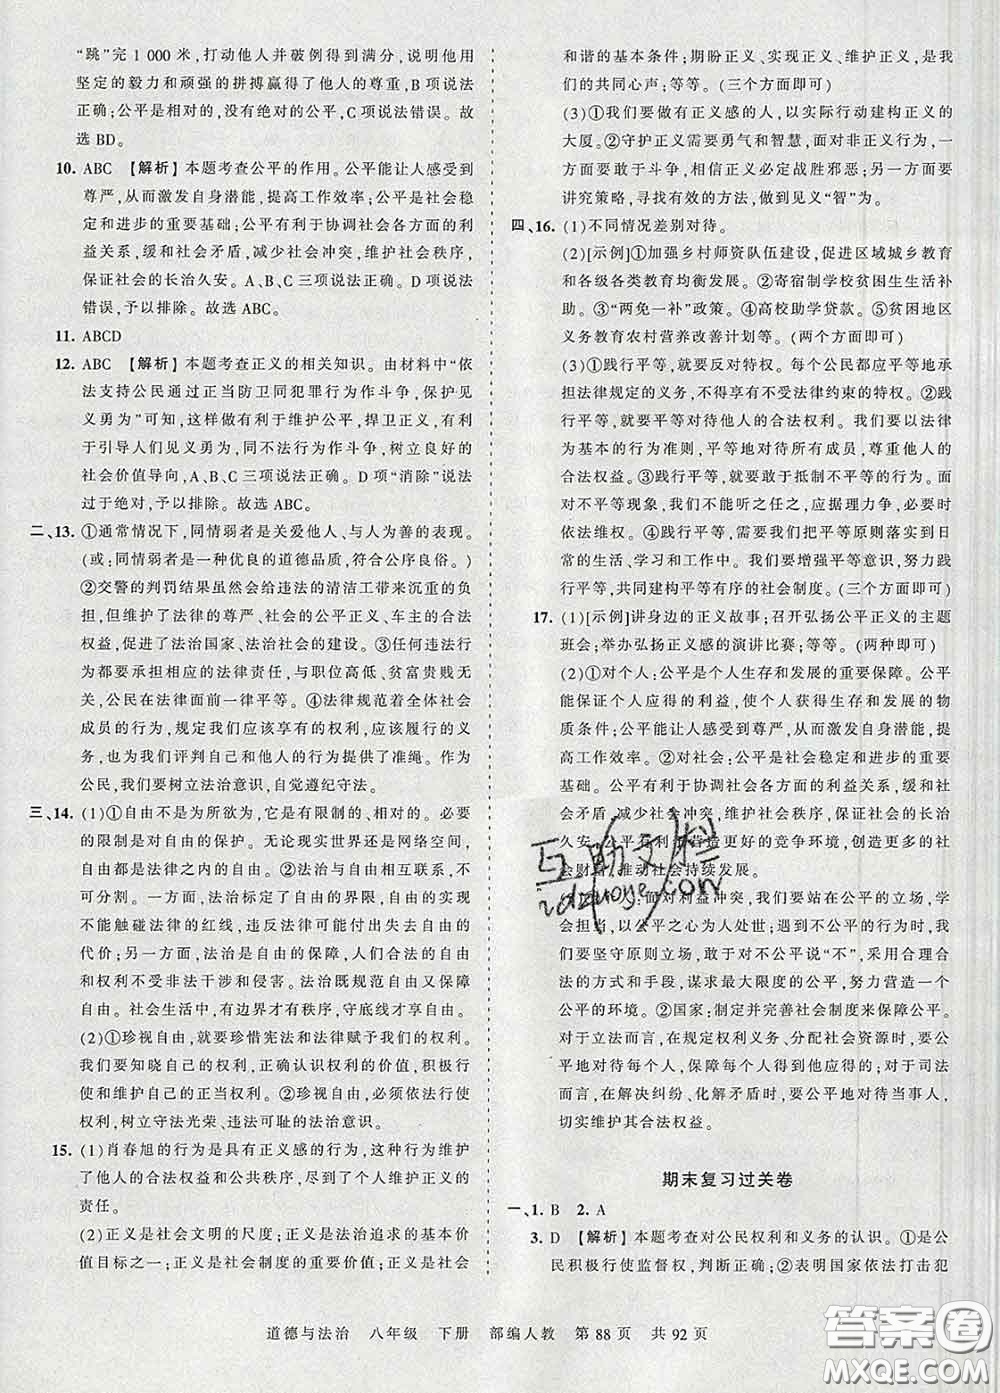 “跳”完 1 000 米,打动他人并破例得到满分,说明他用
坚定的毅力和顽强的拼搏赢得了他人的尊重,B 项说法
正确;公平是相对的,没有绝对的公平,C 项说法错误。故
选 BD。
10. ABC 【解析】本题考查公平的作用。公平能让人感受到
尊严,从而激发自身潜能,提高工作效率;公平是社会稳
定和进步的重要基础;公平有利于协调社会各方面的利
益关系,缓和社会矛盾,减少社会冲突,维护社会秩序,
保证社会的长治久安。A、B、C 三项说法正确。D 项说法
错误,予以排除。故选 ABC。
11. ABCD
12. ABC 【解析】本题考查正义的相关知识。由材料中“依
法支持公民通过正当防卫同犯罪行为作斗争,保护见
义勇为”可知,这样做有利于维护公平,捍卫正义,有利
于引导人们见义勇为,同不法行为作斗争,树立良好的
社会价值导向,A、B、C 三项说法正确。D 项“消除”说法
过于绝对,予以排除。故选 ABC。
二、13. ①通常情况下,同情弱者是关爱他人、与人为善的表现。
(或:同情弱者是一种优良的道德品质,符合公序良俗。)
②交警的判罚结果虽然会给违法的清洁工带来沉重的负
担,但维护了法律的尊严、社会的公平正义、车主的合法
权益,促进了法治国家、法治社会的建设。③任何违法行
为都要承担相应的法律责任,与职位高低、贫富贵贱无
关,公民在法律面前一律平等。④法律规范着全体社会
成员的行为,规定我们应该享有的权利,应该履行的义
务,也为我们评判自己和他人的行为提供了准绳。作为
公民,我们要树立法治意识,自觉遵纪守法。
三、14. (1)①自由不是为所欲为,它是有限制的、相对的。必要
的限制是对自由的保护。无论现实世界还是网络空间,
自由都是法律之内的自由。②法治与自由相互联系,不
可分割。一方面,法治标定了自由的界限,自由的实现
不能触碰法律的红线,违反法律可能付出失去自由的
代价;另一方面,法治是自由的保障,人们合法的自由
不容非法干涉和侵害。法治既规范自由又保障
自由。社会生活中,有边界才有秩序,守底线才有自由。
(2)①珍视自由,就要珍惜宪法和法律赋予我们的权利。
我们要知晓自己的权利,正确认识权利的价值,积极行
使和维护自己的合法权利。②珍视自由,必须依法行使
权利,树立守法光荣、违法可耻的法治意识。
15. (1)肖春旭的行为是具有正义感的行为,这种行为维护
了他人的合法权益和公共秩序,尽到了个人维护正义的
责任。
(2)正义是社会文明的尺度;正义是法治追求的基本价
值目标之一;正义是社会制度的重要价值;正义是社会
和谐的基本条件;期盼正义、实现正义、维护正义,是我
们的共同心声;等等。(三个方面即可)
(3)①我们要做有正义感的人,以实际行动建构正义的
大厦。②守护正义需要勇气和智慧,面对非正义行为,一
方面要敢于斗争,相信正义必定战胜邪恶;另一方面要
讲究策略,寻找有效的方法,做到见“义”“智”为。
四、16. (1)不同情况差别对待。
(2)[示例]①加强乡村师资队伍建设,促进区域城乡教育
和各级各类教育均衡发展。②寄宿制学校贫困生生活补
助。③“两免一补”政策。④高校助学贷款。⑤贫困地区
义务教育农村营养改善计划等。(两个方面即可)
(3)①践行平等,就要反对特权。每个公民都应平等地承
担法律规定的义务,不得享有不受法律约束的特权。②践
行平等,就要平等对待他人的合法权利。我们要以法律
为基本的行为准则,平等地对待所有成员,尊重他人的
合法权益。③践行平等,就要敢于抵制不平等的行为。面
对不平等现象,我们不能听之任之,应据理力争,必要时
依法维权。④践行平等,需要我们把平等原则落实到日
常的生活、学习和工作中。我们要增强平等意识,努力践
行平等,共同建构平等有序的社会制度。(三个方面即可)
17. (1)[示例]讲身边的正义故事;召开弘扬公平正义的主题
班会;举办弘扬正义感的演讲比赛;等等。(两种即可)
(2)①对个人:公平是个人生存和发展的重要保障。公平
能保证个人应得的利益,使个人获得生存和发展的物
质条件;公平能让人感受到尊严,从而激发自身潜能,提
高工作效率。②公平是社会稳定和进步的重要基础。公
平有利于协调社会各方面的利益关系,缓和社
会矛盾,减少社会冲突,维护社会秩序,保证社会的长治
久安;公平有利于营造更好的竞争环境,创造更多的社
会财富,推动社会持续发展。
面对利益冲突,我们要站在公平的立场,学会
担当,以公平之心为人处世;遇到不公平的行为时,我们
要坚守原则立场,敢于对不公平说“不”,采用合理合
法的方式和手段,谋求最大限度的公平,努力营造一个
公平的环境。②国家:制定并完善保障公平的法律法规。
对于立法而言,在规定权利义务、分配社会资源时,要公
平地对待每个人,保障每个人得其应得;对于司法
而言,在解决纠纷、化解矛盾时,要公平地对待当事人,
切实维护其合法权益。
期末复习过关卷
一、1. B 2. A
3. D 【解析】本题考查对公民权利和义务的认识。①是公
民积极行使监督权,判断正确;②表明国家依法打击犯
道德与法治 八年级 下册 部编人教 第 88 页 共 92 页
互助文栏
答案圈
MXQE.COM